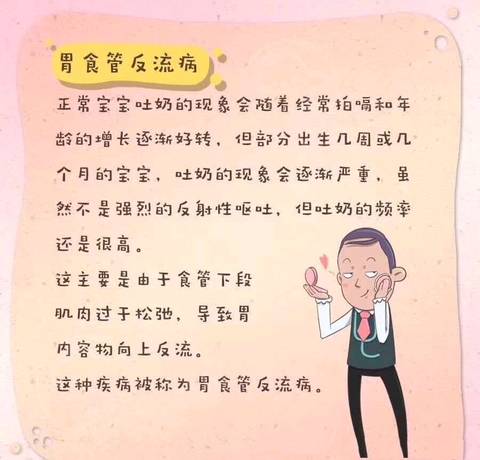 胃食管反流病
正常宝宝吐奶的现象会随着经常拍嗝和年
龄的增长逐渐好转，但部分出生几周或几
个月的宝宝，吐奶的现象会逐渐严重，虽
然不是强烈的反射性呕吐，但吐奶的频率
还是很高。
这主要是由于食管下段
肌肉过于松弛，导致胃
内容物向上反流。
这种疾病被称为胃食管反流病。